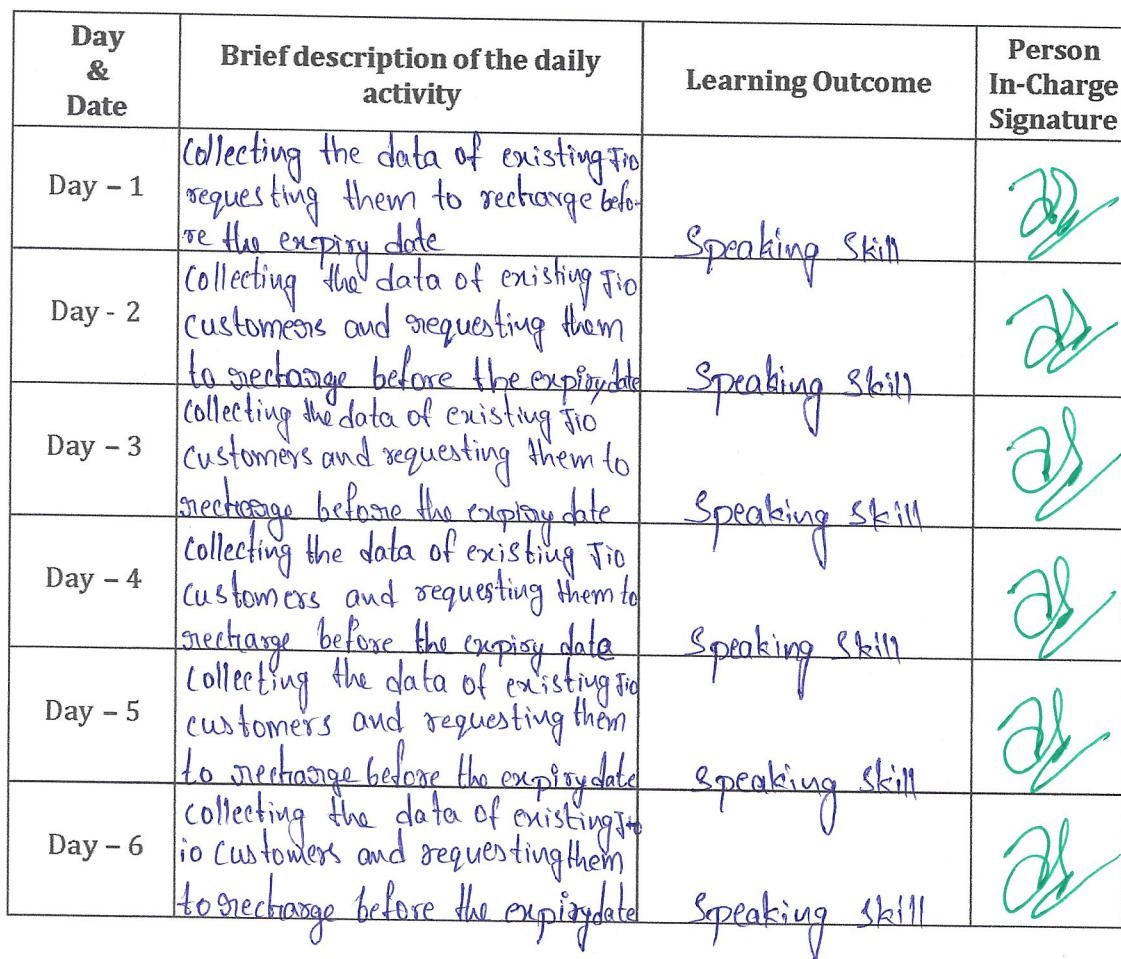 Day
&
Date
Brief description of the daily
activity
Learning Outcome
Person
In-Charge
Signature
Day – 1
Collecting the data of existing Jio
requesting them to recharge befo-
re the expiry date
Speaking Skill
Day - 2
Collecting the data of existing Jio
customeers and requesting them
to recharge before the expiry date
Speaking Skill
Day – 3
Collecting the data of existing Jio
customers and requesting them to
recharge before the expiry date
Speaking Skill
Day – 4
Collecting the data of existing Jio
customers and requesting them to
recharge before the expiry date
Speaking Skill
Day – 5
Collecting the data of existing Jio
customers and requesting them
to recharge before the expiry date
Speaking Skill
Day – 6
Collecting the data of existing J
io customers and requesting them
to recharge before the expiry date
Speaking Skill